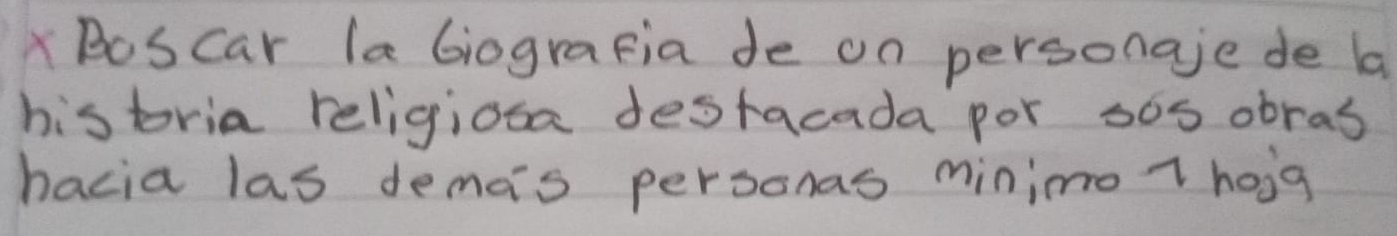 x Boscar la biografia de on personaje de la
historia religiosa destacada por sos obras
hacia las demás personas minimo 1 hoja